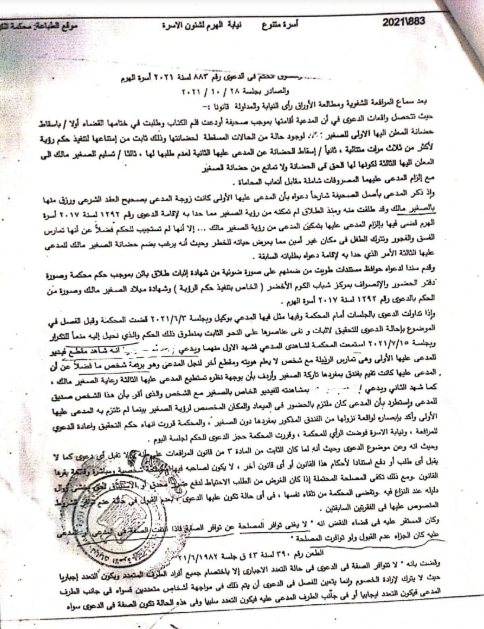 883\2021
أسرة متنوع
نيابة الهرم لشئون الاسرة
موقع الطباعة: محكمة
فى الدعوى رقم ٨٨٣ لسنة ٢٠٢١ أسرة الهرم
والصادر بجلسة ٢٨ / ١٠ / ٢٠٢١
بعد سماع المرافعة الشفوية ومطالعة الأوراق رأى النيابة والمداولة قانونا :-
حيث تتحصل واقعات الدعوى في أن المدعية أقامتها بموجب صحيفة أودعت قلم الكتاب وطلبت في ختامها القضاء أولا / بإسقاط
حضانة المعلن اليها الاولى للصغير لوجود حالة من الحالات المسقطة لحضانتها وذلك ثابت من إمتناعها لتنفيذ حكم رؤية
لأكثر من ثلاث مرات متتالية ، ثانيا / إسقاط الحضانة عن المدعى عليها الثانية لعدم طلبها لها ، ثالثا / تسليم الصغير مالك الى
المعلن اليها الثالثة لكونها لها الحق فى الحضانة ولا تمانع من حضانة الصغير
مع إلزام المدعى عليهما المصروفات شاملة مقابل أتعاب المحاماة .
وإذ ذكر المدعى بأصل الصحيفة شارحاً دعواه بأن المدعى عليها الأولى كانت زوجة المدعى بصحيح العقد الشرعى ورزق منها
بالصغير مالك وقد طلقت منه ومنذ الطلاق لم تمكنه من رؤية الصغير مما حدا به لإقامة الدعوى رقم ١٢٩٢ لسنة ٢٠١٧ أسرة
الهرم قضى فيها بإلزام المدعى عليها بتمكين المدعى من رؤية الصغير مالك ... إلا أنها لم تستجيب للحكم فضلاً عن أنها تمارس
الفسق والفجور وتترك الطفل فى مكان غير أمين مما يعرض حياته للخطر وحيث أنه يرغب بضم حضانة الصغير مالك للمدعى
عليها الثالثة الأمر الذى حدا به لإقامة دعواه بطلباته السابقة .
وقدم سندا لدعواه حوافظ مستندات طويت من ضمنهم على صورة ضوئية من شهادة إثبات طلاق بائن بموجب حكم محكمة وصورة
دفتر الحضور والإنصراف بمركز شباب الكوم الأخضر ( الخاص بتنفيذ حكم الرؤية ) وشهادة ميلاد الصغير مالك وصورة من
الحكم بالدعوى رقم ١٢٩٢ لسنة ٢٠١٧ أسرة الهرم .
وإذا تداولت الدعوى بالجلسات أمام المحكمة وفيها مثل فيها المدعي بوكيل وبجلسة ٢٠٢١/٦/٣ قضت المحكمة وقبل الفصل فى
الموضوع بإحالة الدعوى للتحقيق لاثبات و نفى عناصرها على النحو الثابت بمنطوق ذلك الحكم والذي نحيل إليه منعاً للتكرار
وبجلسة ٢٠٢١/٧/١٥ استمعت المحكمة لشاهدى المدعي فشهد الاول منهما ويدعي أنه شاهد مقطع فيديو
للمدعى عليها الأولى وهى تمارس الرذيلة مع شخص لا يعلم هويته ومقطع أخر لنجل المدعى وهو برفقة شخص ما فضلاً عن أن
المدعى عليها كانت تقيم بفندق بمفردها تاركة الصغير وأردف بأن بوجهة نظره تستطيع المدعى عليها الثالثة رعاية الصغير مالك ،
كما شهد الثاني ويدعي بمشاهدته للفيديو الخاص بالصغير مع الشخص والذى أقر بأن هذا الشخص صديق
للمدعى واستطرد بأن المدعى كان ملتزم بالحضور فى الميعاد والمكان المخصص لرؤية الصغير بينما لم تلتزم به المدعى عليها
الأولى وأكد بإبصاره لواقعة نزولها من الفندق المذكور بمفردها دون الصغير ، والمحكمة قررت انهاء حكم التحقيق واعادة الدعوى
للمرافعة ، ونيابة الاسرة فوضت الرأى للمحكمة ، وقررت المحكمة حجز الدعوى للحكم لجلسة اليوم .
وحيث انه وعن موضوع الدعوى وحيث أنه لما كان الثابت من المادة ٣ من قانون المرافعات على أنه لا تقبل أى دعوى كما لا
يقبل أى طلب أو دفع استنادا لأحكام هذا القانون أو أى قانون أخر ، لا يكون لصاحبه فيها مصلحة شخصية ومباشرة وقائمة يقرها
القانون .ومع ذلك تكفى المصلحة المحتملة إذا كان الغرض من الطلب الاحتياط لدفع ضرر محدق أو
دليله عند النزاع فيه . وتقضى المحكمة من تلقاء نفسها ، فى أى حالة تكون عليها الدعوى ، بعدم القبول فى حالة عدم
المنصوص عليها فى الفقرتين السابقتين .
وكان المستقر عليه فى قضاء النقض انه " لا يغنى توافر المصلحة عن توافر الصفة فإذا انتفت الصفة فى المدعى أو المدعى
عليه كان الجزاء عدم القبول ولو توافرت المصلحة "
الطعن رقم ٣٩٠ لسنة ٤٣ ق جلسة ٢١/٦/١٩٨٢
وقضت بأنه " لا تتوافر الصفة فى الدعوى فى حالة التعدد الاجبارى إلا بإختصام جميع أفراد الطرف المتعدد ويكون التعدد إجباريا
حيث لا يترك لإرادة الخصوم وإنما يتعين للفصل فى الدعوى أن يتم ذلك فى مواجهة أشخاص متعددين فسواء فى جانب الطرف
المدعى فيكون التعدد ايجابيا أو فى جانب الطرف المدعى عليه فيكون التعدد سلبيا وفى هذه الحالة تكون الصفة فى الدعوى سواء